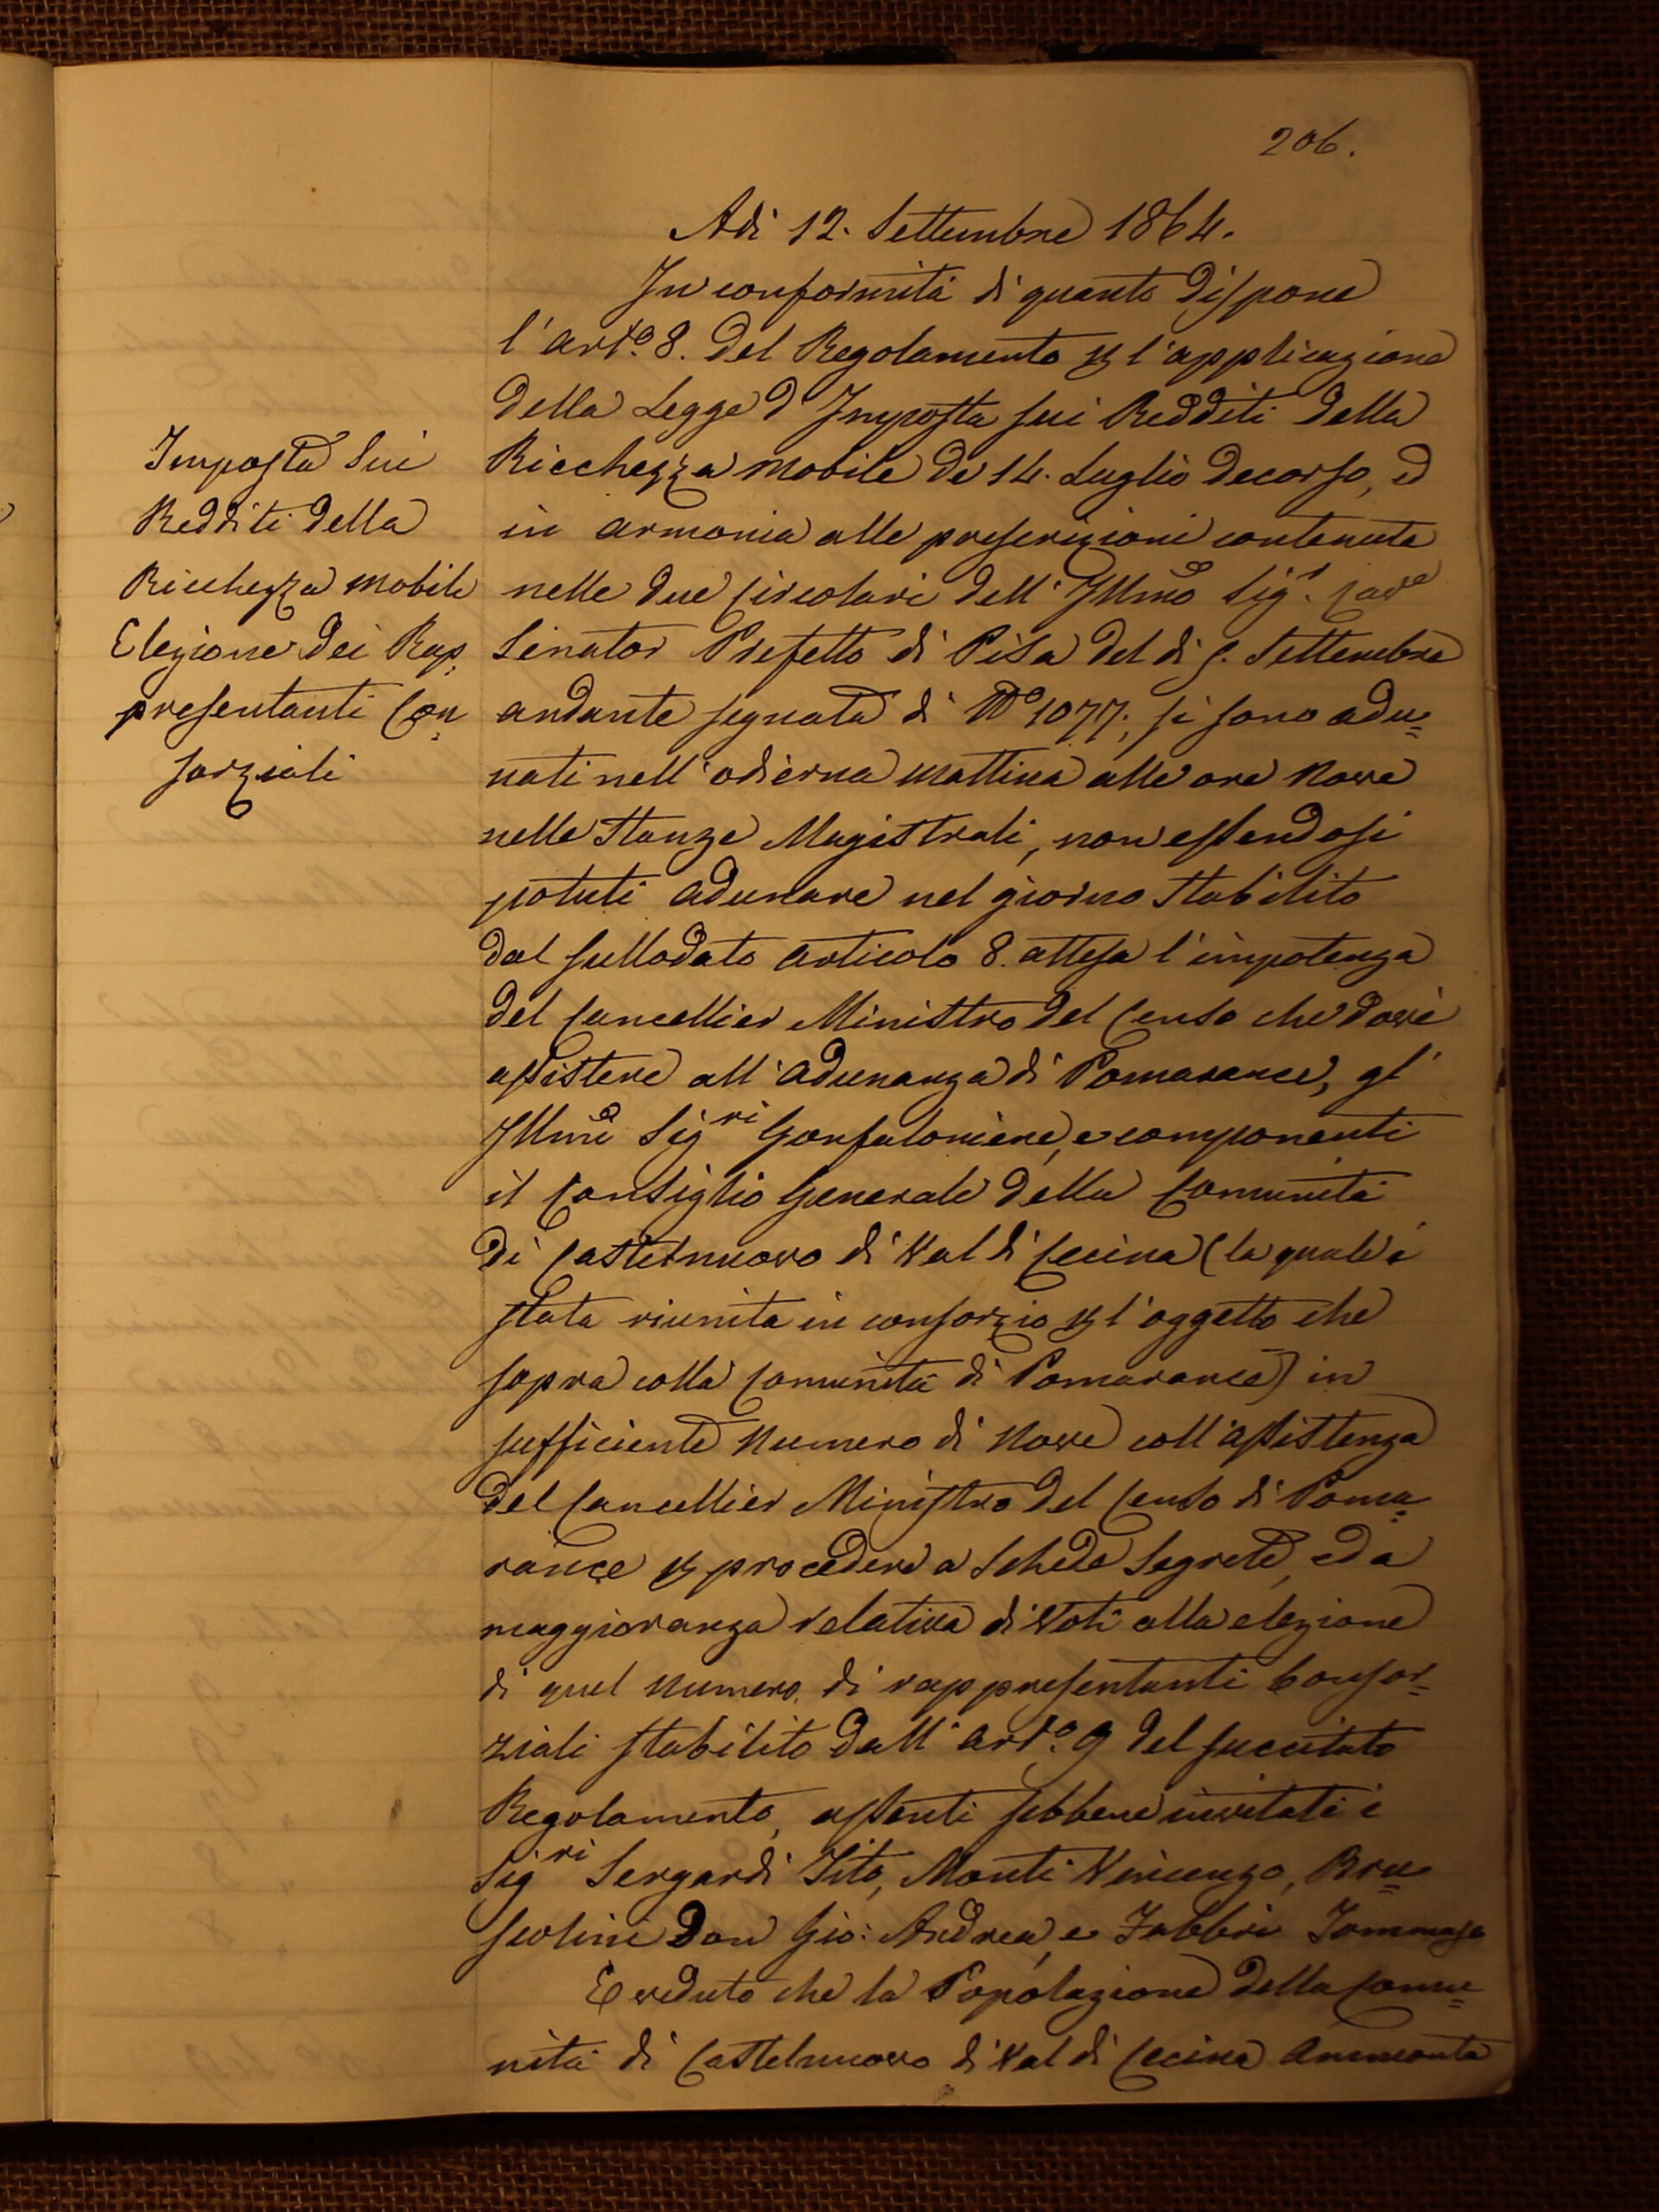 206.
Adi 12. Settembre 1864.
In conformità di quanto dispone
l'Art.o 8. del Regolamento p l'applicazione
della Legge d'Imposta sui Redditi della
Ricchezza mobile de 14. Luglio decorso, ed
in armonia alle prescrizioni contenute
nelle due Circolari dell'Illmo Sig.r Cave
Senator Prefetto di Pisa del di 5. Settembre
andante segnata di No 1077; si sono adu=
nati nell'odierna mattina alle ore Nove
nelle Stanze Magistrali, non essendosi
potuti adunare nel giorno stabilito
dal sullodato articolo 8. attesa l'impotenza
del Cancellier Ministro del Censo che dové
assistere all'adunanza di Pomarance, gl'
Illmi Sigri Gonfaloniere, e componenti
il Consiglio Generale della Comunità
di Castelnuovo di Val di Cecina (la quale é
stata riunita in consorzio p l'oggetto che
sopra colla Comunità di Pomarance) in
sufficiente Numero di Nove coll'assistenza
del Cancellier Ministro del Censo di Poma=
rance p procedere a Schede Segrete, ed a
maggioranza relativa di Voti alla elezione
di quel Numero di rappresentanti Consor=
ziali stabilito dall'Art.o 9 del succitato
Regolamento, assenti sebbene invitati i
Sigri Sergardi Tito, Monti Vincenzo, Bru=
scolini Don Gio: Andrea, e Fabbri Tommaso
E veduto che la Popolazione della Comu=
nità di Castelnuovo di Val di Cecina ammonta
Imposta Sui
Redditi della
Ricchezza mobile
Elezione dei Rap=
presentanti Con=
sorziali